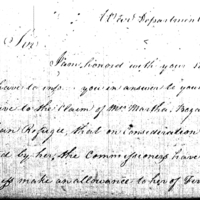 War Department
Sir
I am honored with your
have to info you in answer to your
ive to the Claim of Mrs. Martha
an Refugee, that on Consideration
d by her, the Commissioners have
ess make an allowance to her of